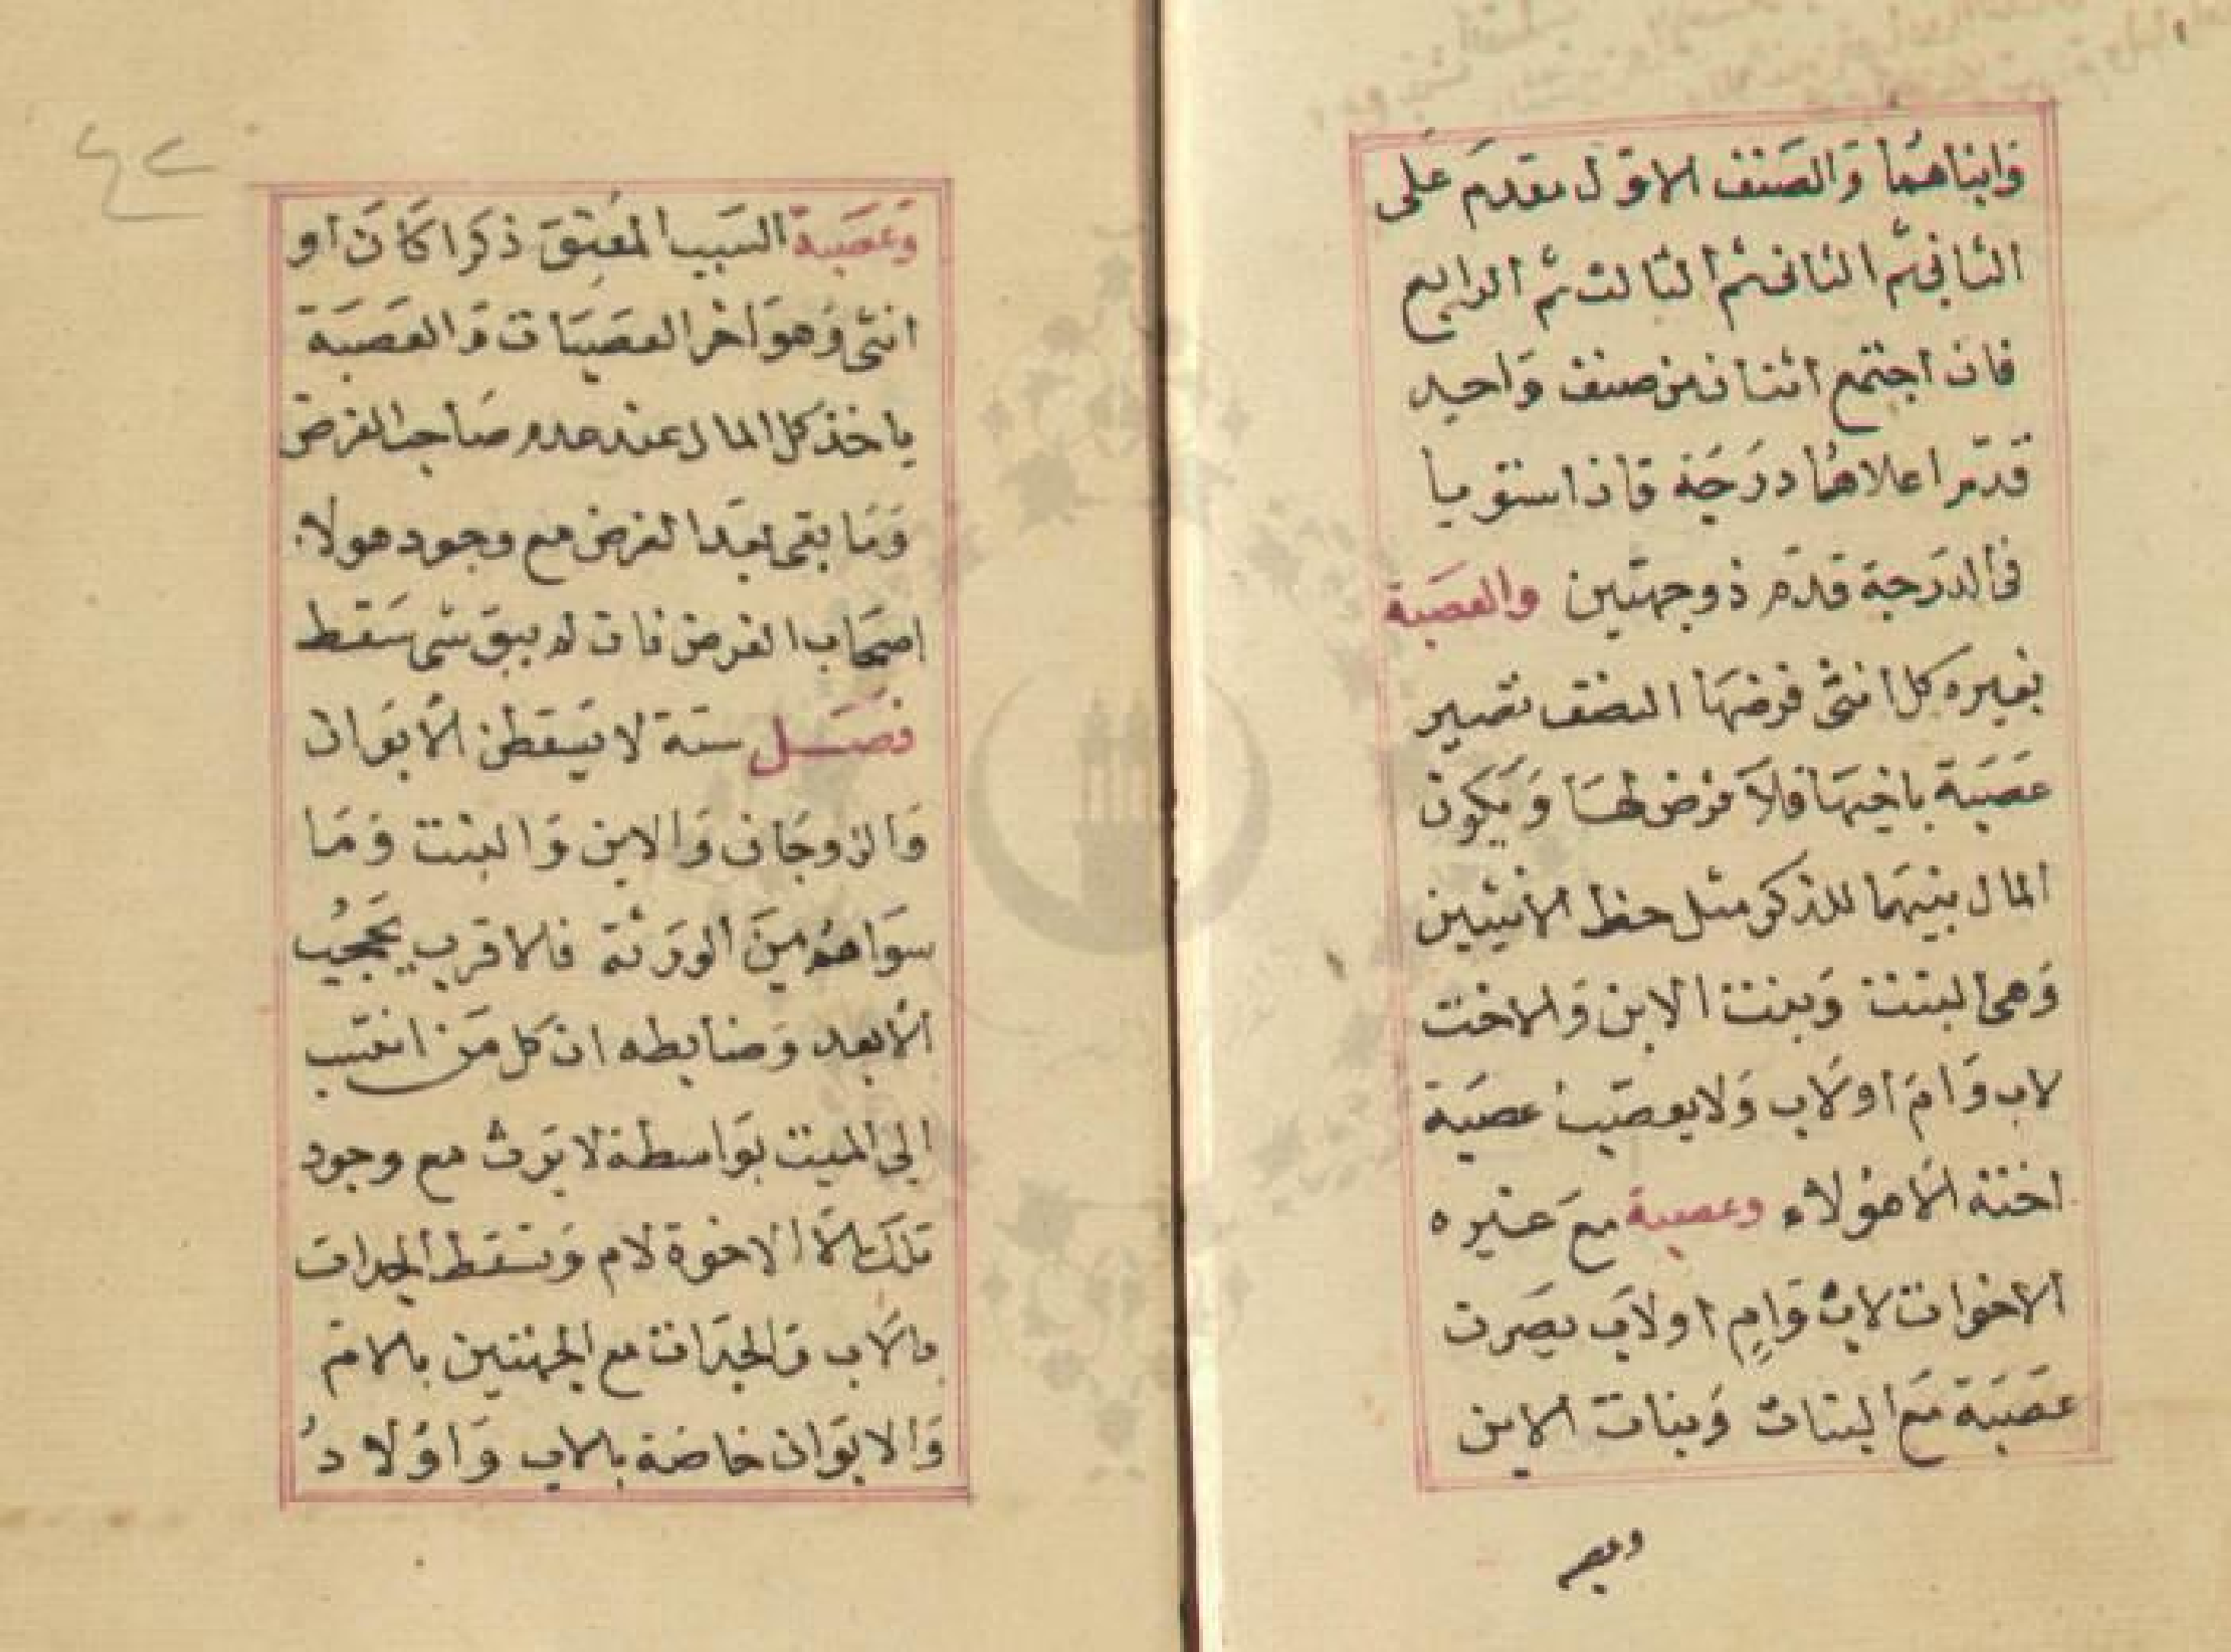 وَابناهُما وَالصَنف الاوّل مقدمَ عَلى
الثانى ثم الثانى ثم الثالث ثم الرابع
فان اجتمع اثنان من صنف وَاحيد
قدّم اعلاهُما درَجَة فاذ استويا
فى الدَرَجة قدّم ذوجهتين والعصَبة
بغيره كل انثى فرضهَا النصف تصير
عَصَبَة باخيهَا فلاَ فرض لهَا وَيَكون
المال بينهمَا للذكر مثل حظ الانثيين
وَهى البنت وَبنت الابن وَالاخت
لاب وَامَ اولَاب وَلا يعصّب عصَبة
اخته الَا هؤلاء وعصبة مع غَيره
الاخوات لاب وَامٍ اولاَب يصَرت
عَصَبَة مَع البنات وَبنات الابن
وعص
وَعَصَبة السَبب المُعتِقَ ذكرَا كَانَ او
انثى وَهوَ اخر العصَبَات وَالعَصَبَة
ياخذ كل المال عند عدم صَاحب الفرض
وَمَا بقى بعَد الفرض مع وجود هولاء
اصحَاب الفرض فان لم يبق شى سَقط
فصَل ستة لا يَسَقطن الَابوَان
وَالزوجَان وَالابن وَالبنت وَمَا
سوَاهُم مِنَ الورَثة فالاقرب يَحجُب
الَابعد وَضابطه ان كل مَن انتسَب
الى الميت بوَاسطة لا يَرث مع وجود
تلكَ الَا الاخوة لام وَتسقط الجدات
بالَاب وَالجدَات مع الجهتين بالامّ
وَالابوَان خاصَة بالاب وَاوُلادُ
٤٢